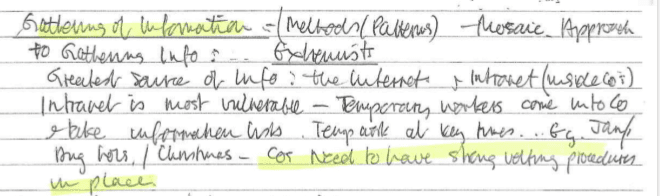 Gathering of Information - (Methods (Patterns) - Mosaic Approach
to Gathering Info : ... Extremists
Greatest Source of Info : the Internet & Intranet (inside Co's)
Intranet is most vulnerable - Temporary workers come into Co
& take information lists. Temps work at key times... Eg.
/ Christmas - Cos need to have strong vetting procedures
in place